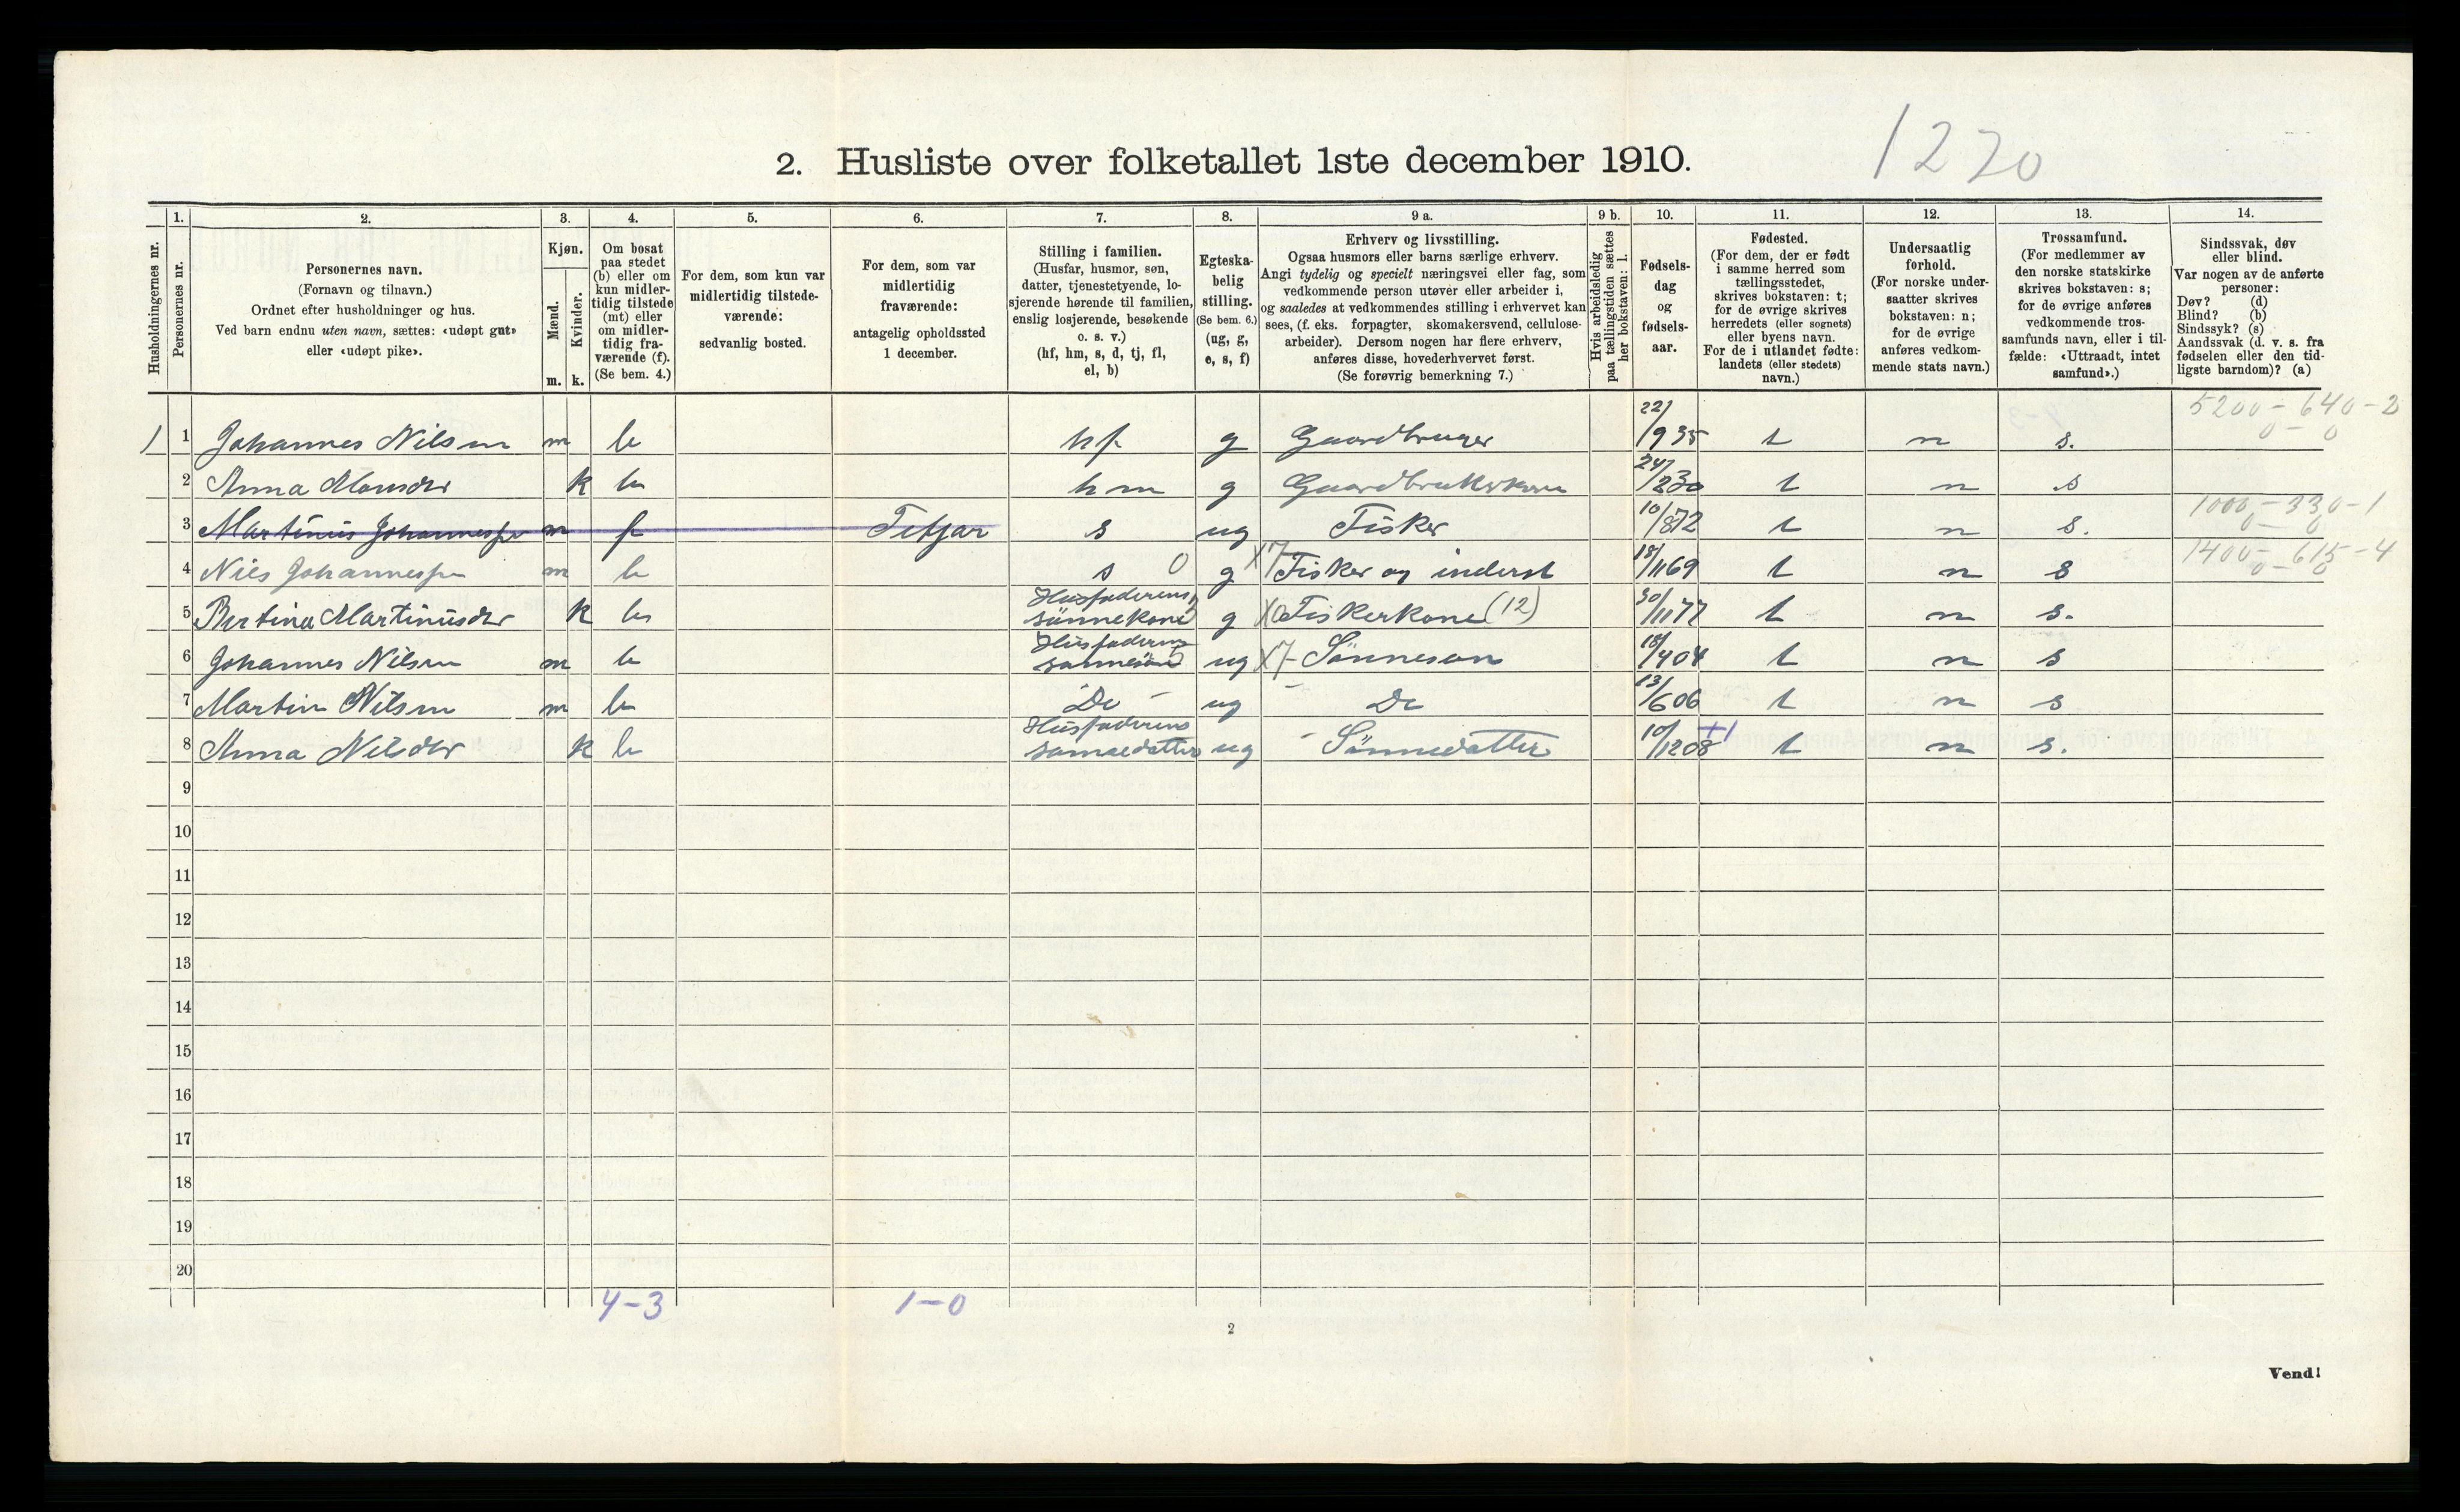 1220
2. Husliste over folketallet 1ste december 1910.
Husholdningernes nr.
1. Personernes nr.
2. Personernes navn.
(Fornavn og tilnavn.)
Ordnet efter husholdninger og hus.
Ved barn endnu uten navn, sættes: «udøpt gut»
eller «udøpt pike».
3. Kjøn.
Mænd. m.
Kvinder. k.
4. Om bosat
paa stedet
(b) eller om
kun midler-
tidig tilstede
(mt) eller
om midler-
tidig fra-
værende (f).
(Se bem. 4.)
5. For dem, som kun var
midlertidig tilstede-
værende:
sedvanlig bosted.
6. For dem, som var
midlertidig
fraværende:
antagelig opholdssted
1 december.
7. Stilling i familien.
(Husfar, husmor, søn,
datter, tjenestetyende, lo-
sjerende hørende til familien,
enslig losjerende, besøkende
o. s. v.)
(hf, hm, s, d, tj, fl,
el, b)
8. Egteska-
belig
stilling.
(Se bem. 6.)
(ug, g,
e, s, f)
9 a. Erhverv og livsstilling.
Ogsaa husmors eller barns særlige erhverv.
Angi tydelig og specielt næringsvei eller fag, som
vedkommende person utøver eller arbeider i,
og saaledes at vedkommendes stilling i erhvervet kan
sees, (f. eks. forpagter, skomakersvend, cellulose-
arbeider). Dersom nogen har flere erhverv,
anføres disse, hovederhvervet først.
(Se forøvrig bemerkning 7.)
9 b. Hvis arbeidsledig
paa tællingstiden sættes
her bokstaven: l.
10. Fødsels-
dag
og
fødsels-
aar.
11. Fødested.
(For dem, der er født
i samme herred som
tællingsstedet,
skrives bokstaven: t;
for de øvrige skrives
herredets (eller sognets)
eller byens navn.
For de i utlandet fødte:
landets (eller stedets)
navn.)
12. Undersaatlig
forhold.
(For norske under-
saatter skrives
bokstaven: n;
for de øvrige
anføres vedkom-
mende stats navn.)
13. Trossamfund.
(For medlemmer av
den norske statskirke
skrives bokstaven: s;
for de øvrige anføres
vedkommende tros-
samfunds navn, eller i til-
fælde: «Uttraadt, intet
samfund».)
14. Sindssvak, døv
eller blind.
Var nogen av de anførte
personer:
Døv? (d)
Blind? (b)
Sindssyk? (s)
Aandssvak (d. v. s. fra
fødselen eller den tid-
ligste barndom)? (a)
1 1 Johannes Nilsen m b hf g Gaardbruger 22/9 35 t n s. 5200 – 640 – 2 0 – 0
2 Anna Monsdtr k b hm g Gaardbrukerkone 24/2 30 t n s
3 Martinus Johannessen m f Fitjar s ug Fisker 10/8 72 t n s. 1000 – 330 – 1 0 – 0
4 Nils Johannessen m b s 0 g X7 Fisker og inderst 18/11 69 t n s 1400 – 615 – 4 0 – 0
5 Bertina Martinusdtr k b Husfaderens
sønnekone g Fiskerkone (12) 30/11 77 t n s.
6 Johannes Nilsen m b Husfaderens
sønnesøn ug X7 – Sønnesøn 18/4 04 t n s
7 Martin Nilsen m b Do – ug – Do 13/6 06 t n s
8 Anna Nilsdtr k b Husfaderens
sønnedatter ug – Sønnedatter 10/12 08 +1 t n s.
9
10
11
12
13
14
15
16
17
18
19
20
4–3 1–0
2
Vend!